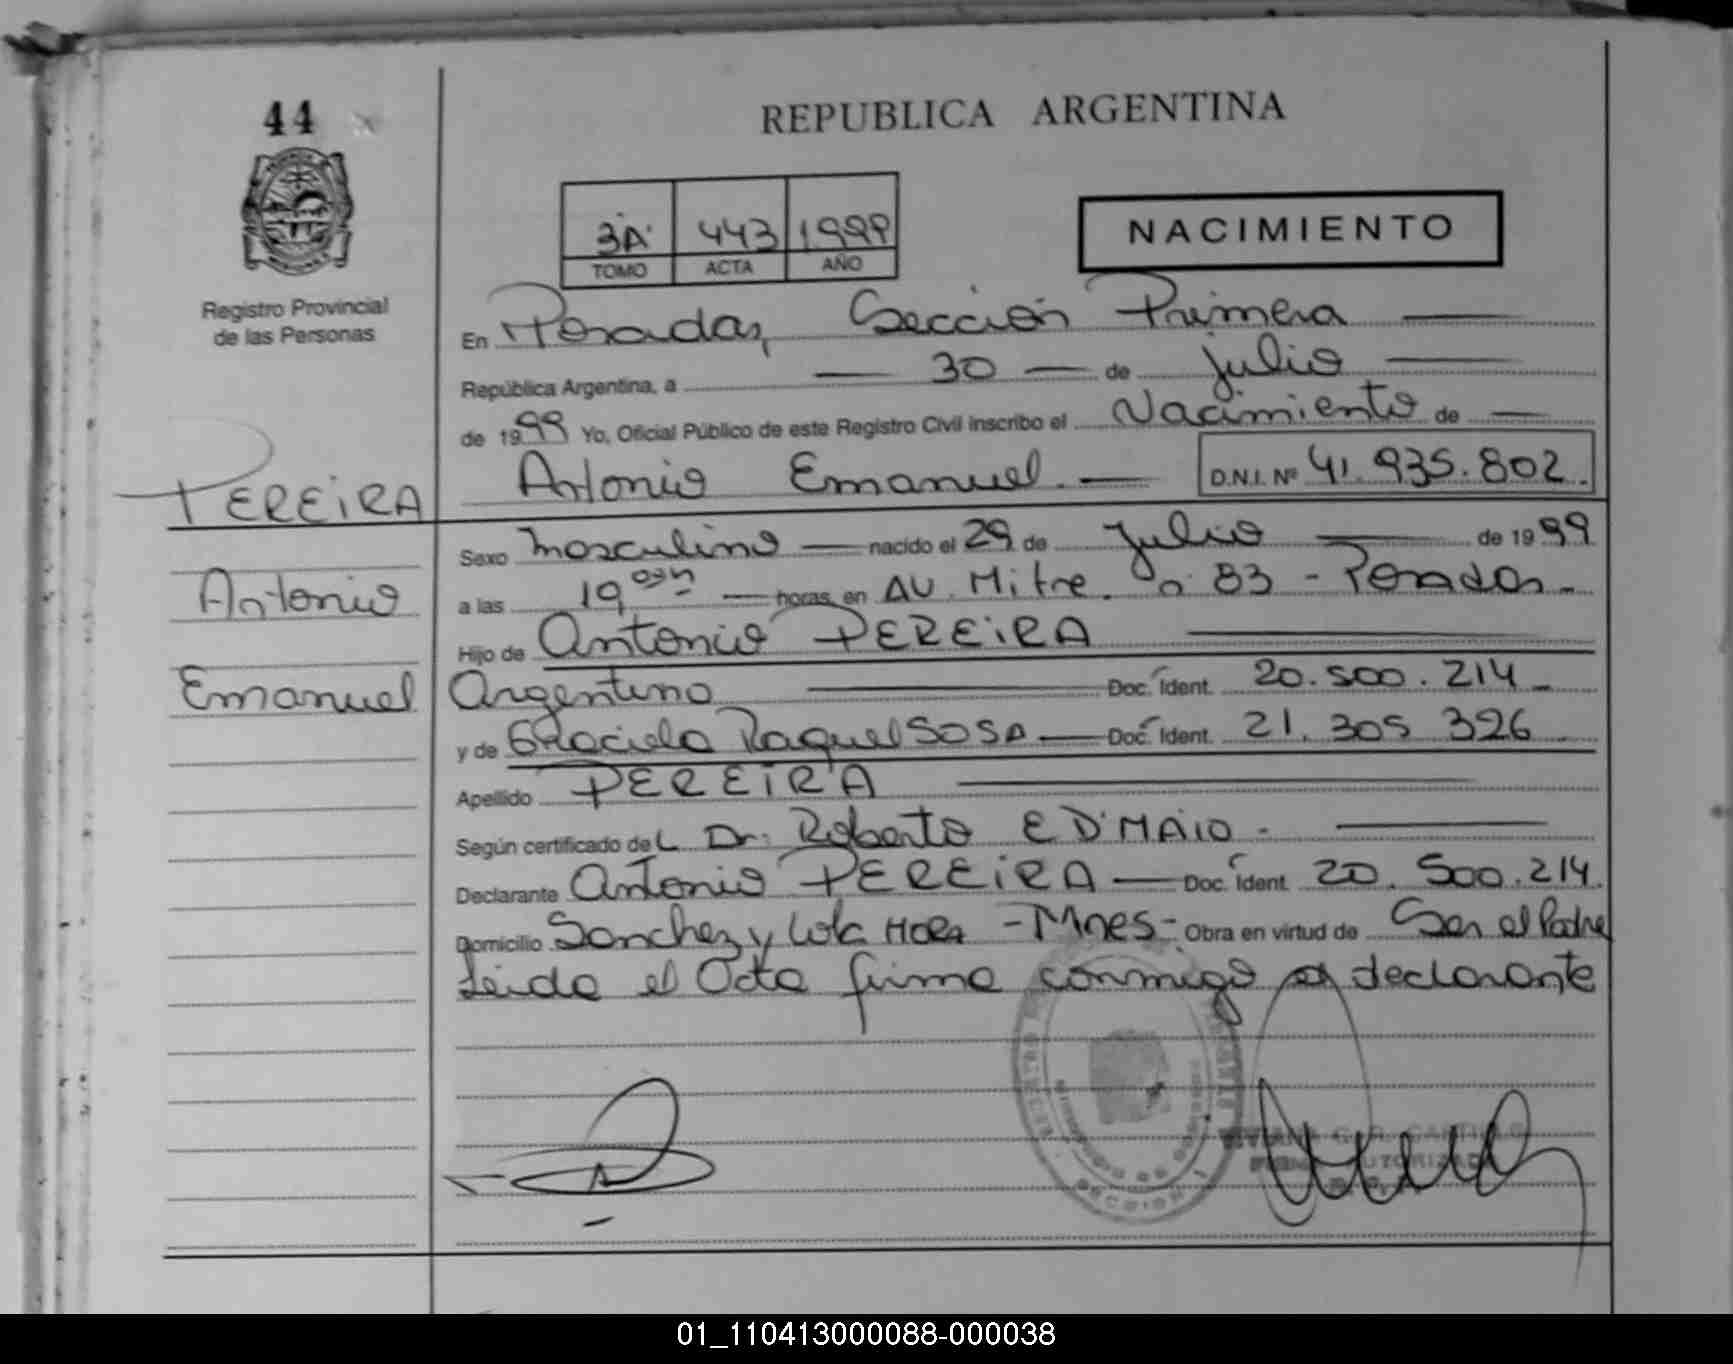 44
REPUBLICA ARGENTINA
3A 443 1999
TOMO ACTA AÑO
NACIMIENTO
Registro Provincial
de las Personas
En Posadas, Sección Primera
República Argentina, a 30 de julio
de 1999 Yo, Oficial Público de este Registro Civil inscribo el Nacimiento de
PEREIRA
Antonio Emanuel D.N.I. Nº 41.935.802
Sexo masculino nacido el 29 de Julio de 1999
Antonio
a las 19 horas, en AV. Mitre nº 83 - Posadas
Hijo de Antonio PEREIRA
Emanuel
Argentino Doc. Ident. 20.500.214
y de Graciela Raquel SOSA Doc. Ident. 21.305 326
Apellido PEREIRA
Según certificado del Dr. Roberto E D'MAIO
Declarante Antonio PEREIRA Doc. Ident. 20.500.214.
Domicilio Sanchez y - Mnes - Obra en virtud de Ser el Padre
Leida el Acta firma conmigo el declarante
SECCION 1
01_110413000088-000038